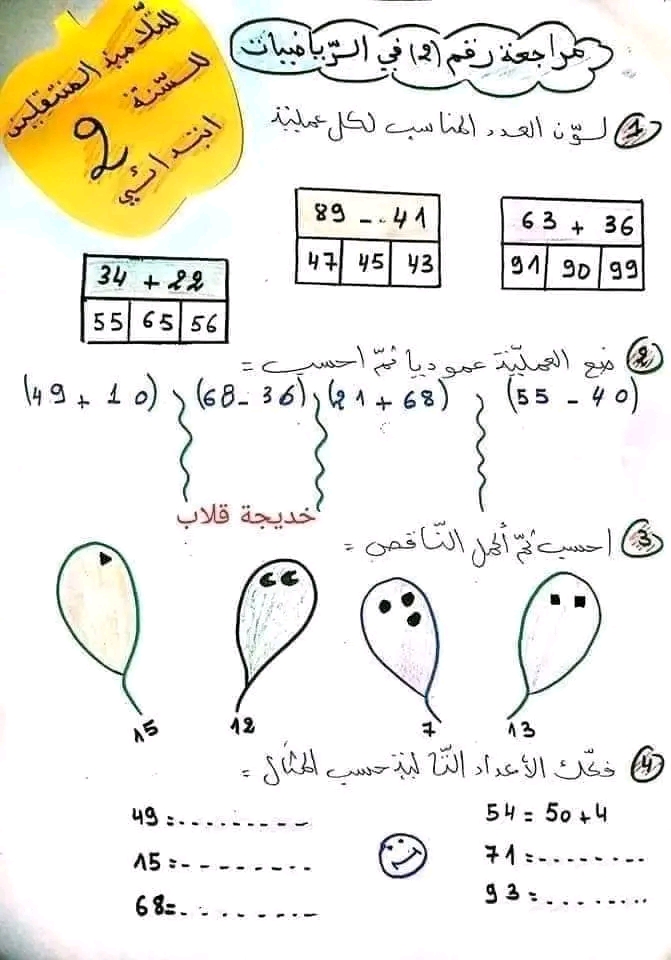 مراجعة رقم (2) في الرّياضيات
للتّلاميذ المنتقلين
للسّنة
2
ابتدائي
1 لوّن العدد المناسب لكل عمليّة
63 + 36
91 90 99
89 - 41
47 45 43
34 + 22
55 65 56
2 ضع العمليّة عموديا ثمّ احسب =
(55 - 40)
(21 + 68)
(68 - 36)
(49 + 10)
خديجة قلاب
3 احسب ثمّ أكمل النّاقص =
13
7
12
15
4 فكّك الأعداد التّالية حسب المثال =
54 = 50 + 4
71 = ........
93 = ........
49 = .........
15 = .........
68 = .........